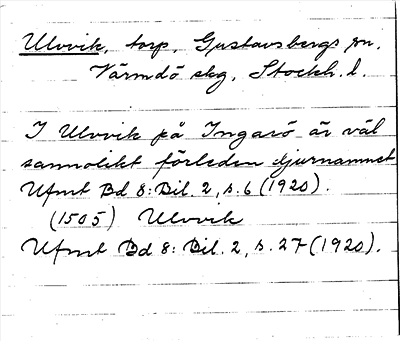 Ulvvik, torp, Gustavsbergs sn.
Värmdö skg, Stockh. l.
I Ulvvik på Ingarö är väl
sannolikt förleden djurnamnet
Ufmt Bd 8: Bil. 2, s. 6 (1920).
(1505) Ulvvik
Ufmt Bd 8: Bil. 2, s. 27 (1920).